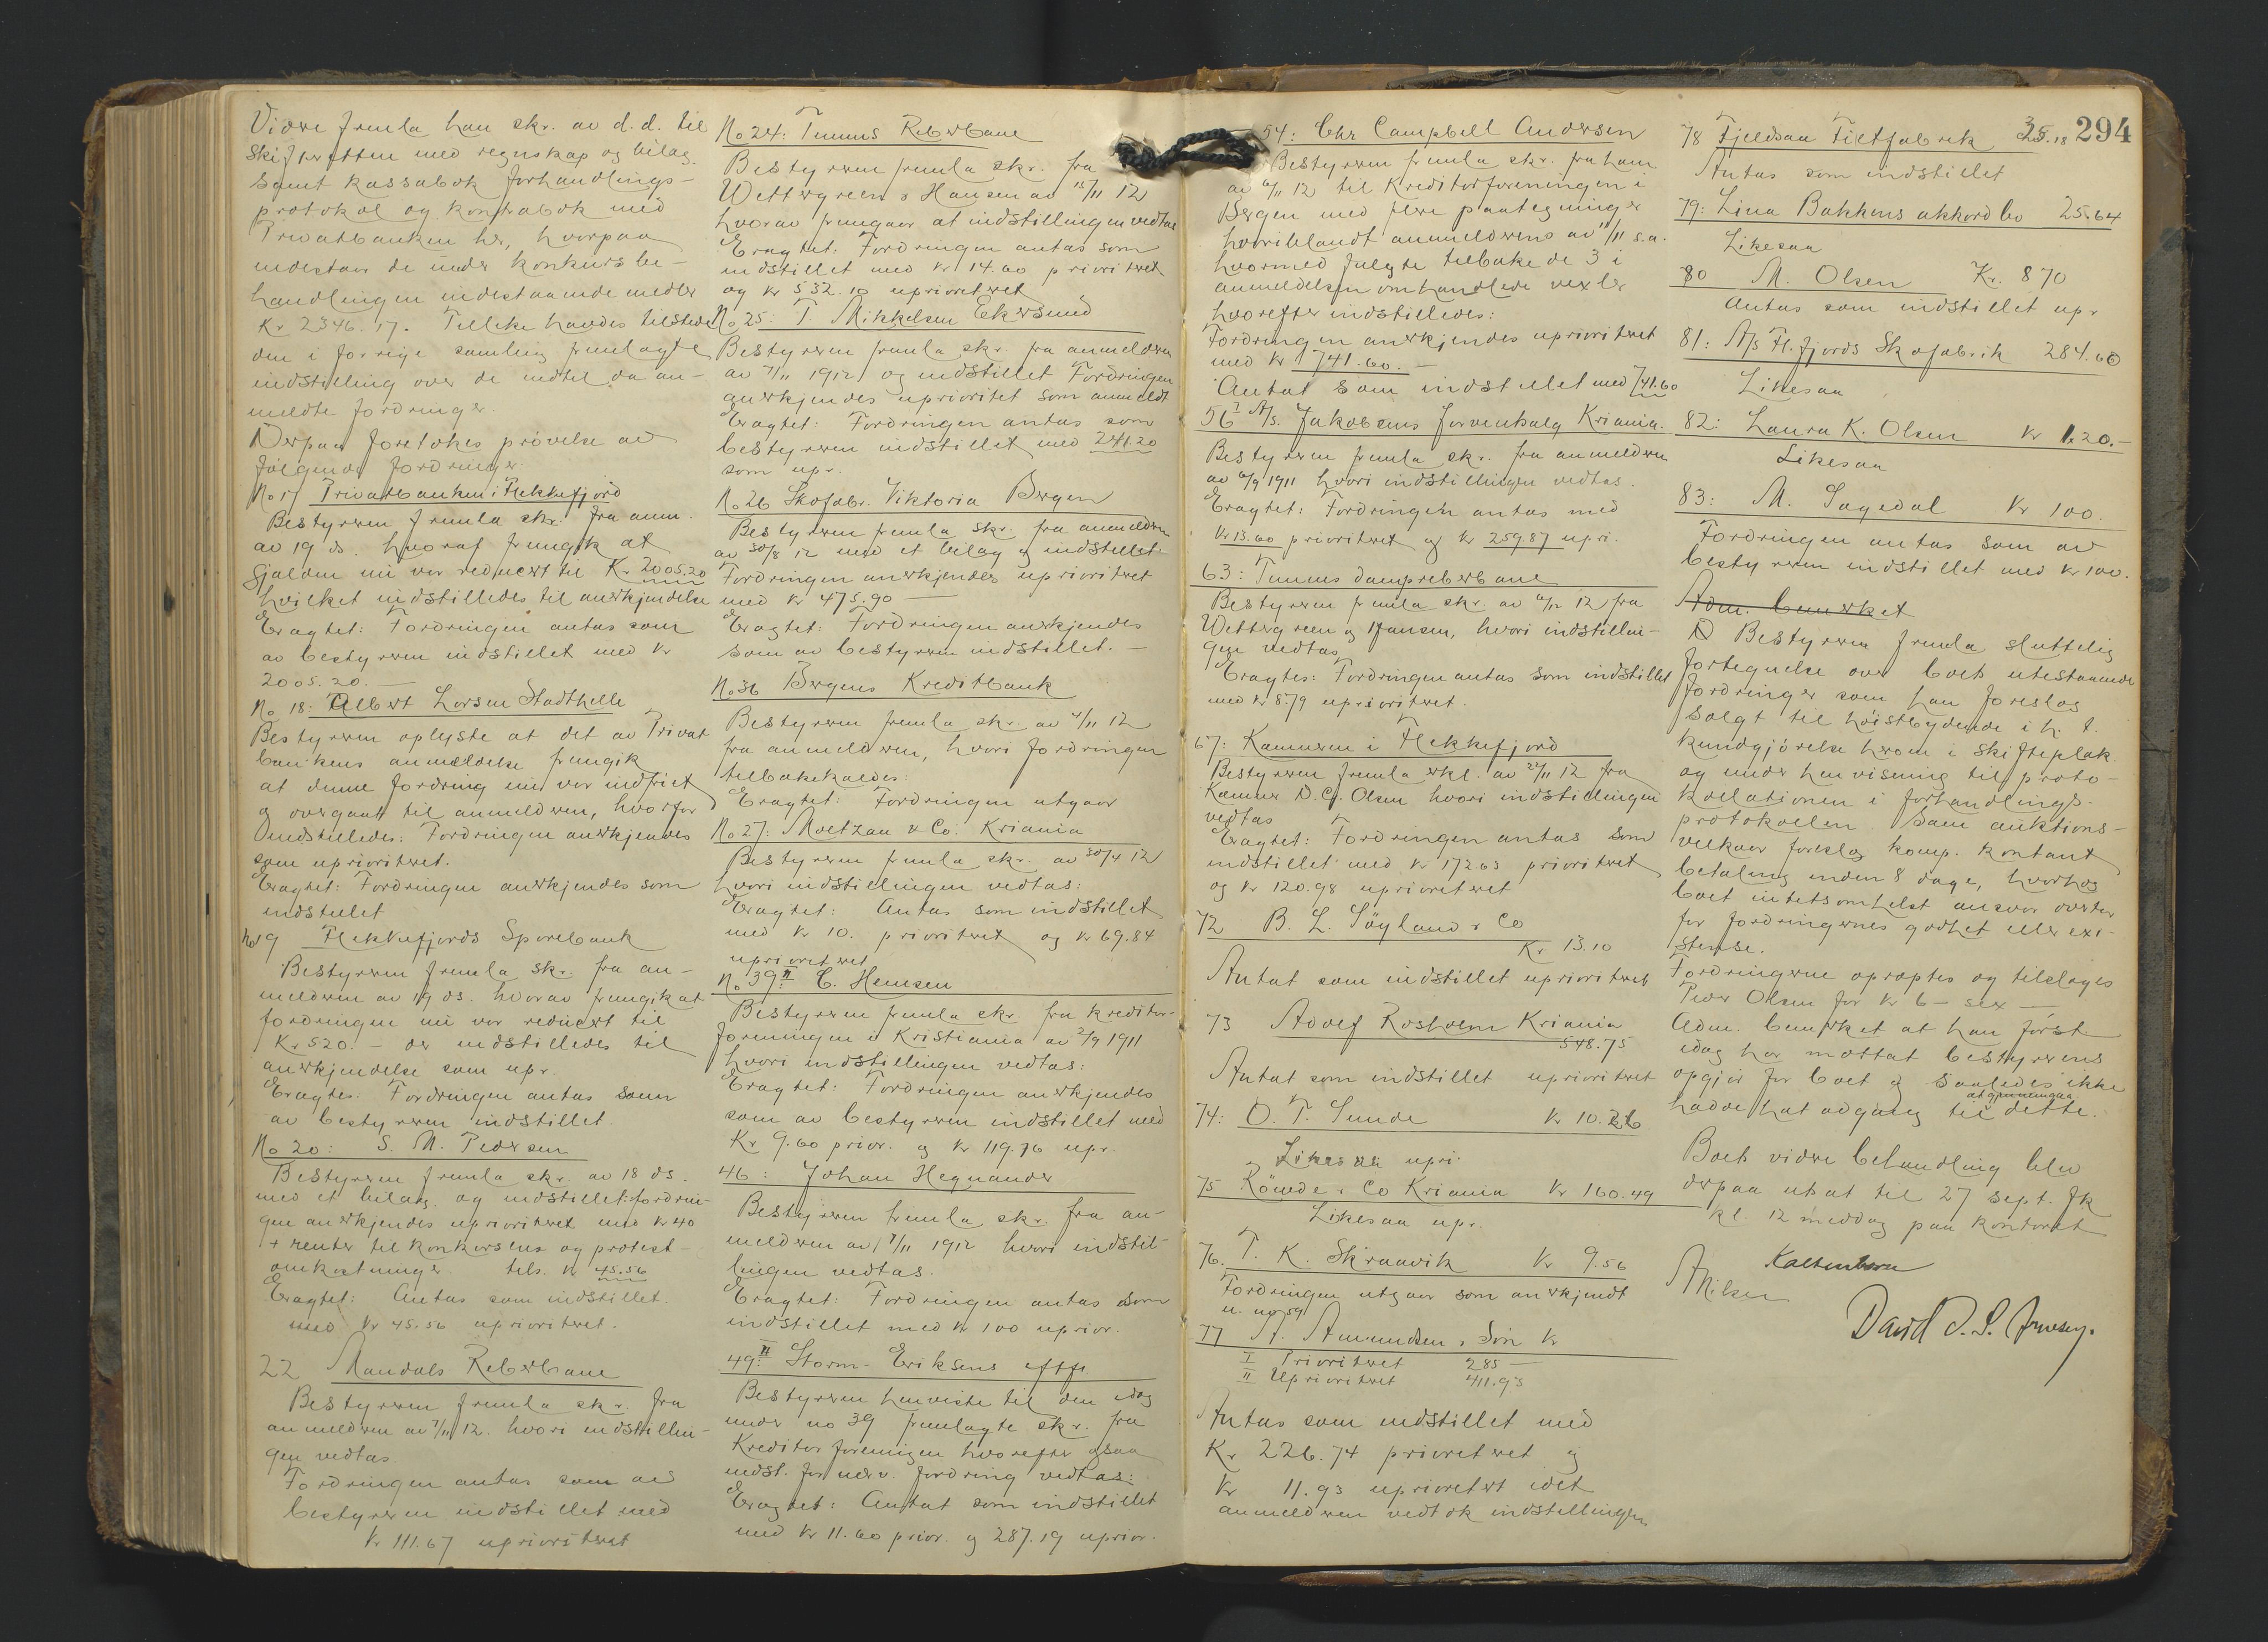 Vidre fremla han skr. av d.d. til
Skifteretten med regnskap og bilag,
samt kassabok forhandlings-
protokol og kontrabok med
Privatbanken her, hvorpaa
indestaar de under konkursbe-
handlingen indestaaende midler
Kr. 2346.17. Tillike havdes tilstede
den i forrige samling fremlagte
indstilling over de indtil da an-
meldte fordringer.
Derpaa foretokes prövelse av
følgende fordringer:
No 17 Privatbanken i Flekkefjord
Bestyreren fremla skr. fra anm.
av 19 ds. hvoraf fremgik at
Gjælden nu var reducert til Kr. 2005.20
hvilket indstilledes til anerkjendelse
Eragtet: Fordringen antas som
av bestyreren indstillet med kr
2005.20.—
No 18: Albert Larsen Stadthelle
Bestyreren oplyste at det av Privat
bankens anmeldelse fremgik
at denne fordring nu var indfriet
og overgaat til anmelderen, hvorfor
indstilledes: Fordringen anerkjendes
som uprioritert.
Eragtet: Fordringen anerkjendes som
indstillet
No 19 Flekkefjords Sparebank
Bestyreren fremla skr. fra an-
melderen av 19 ds. hvorav fremgik at
fordringen nu var reducert til
Kr 520.— der indstilledes til
anerkjendelse som upr.
Eragtes: Fordringen antas som
av bestyreren indstillet.
No 20: S. M. Pedersen
Bestyreren fremla skr. av 18 ds.
med et bilag og indstillet: fordrin-
gen anerkjendes uprioritert med kr 40
+ renter til konkursens og protest-
omkostninger. tils. kr 45.56
Eragtet: Antas som indstillet.
med kr 45.56 uprioritert.
22 Mandals Reberbane
Bestyreren fremla skr. fra
anmelderen av 7/11 12. hvori indstillin-
gen vedtas.
Fordringen antas som av
bestyreren indstillet med
kr 111.67 uprioritert
No 24: Tmms Reberbane
Bestyreren fremla skr. fra
Wettergreen & Hansen av 15/11 12
hvorav fremgaar at indstillingen vedtas
Eragtet: Fordringen antas som
indstillet med kr 14.60 prioritert
og kr 532.10 uprioritert
No 25: T Mikkelsen Ekersund
Bestyreren fremla skr. fra anmelderen
av 7/11 1912 og indstillet Fordringen
anerkjendes uprioritet som anmeldt
Eragtet: Fordringen antas som
bestyreren indstillet med 241.20
som upr.
No 26 Skofabr. Viktoria Bergen
Bestyreren fremla skr. fra anmelderen
av 30/8 12 med et bilag og indstillet:
Fordringen anerkjendes uprioritert
med kr 475.90 —
Eragtet: Fordringen anerkjendes
som av bestyreren indstillet.—
No 36 Bergens Kreditbank
Bestyreren fremla skr. av 4/11 12
fra anmelderen, hvori fordringen
tilbakekaldes:
Eragtet: Fordringen utgaar
No 27: Moltzau & Co. Kriania
Bestyreren fremla skr. av 30/4 12
hvori indstillingen vedtas:
Eragtet: Antas som indstillet
med kr 10. prioritert og kr 69.84
uprioritert
No 39 II: C. Hemsen
Bestyreren fremla skr. fra kreditor-
foreningen i Kristiania av 2/9 1911
hvori indstillingen vedtas:
Eragtet: Fordringen anerkjendes
som av bestyreren indstillet med
Kr 9.60 prior. og kr 119.76 upr.
46: Johan Hegnander
Bestyreren fremla skr. fra an-
melderen av 18/11 1912 hvori indstil-
lingen vedtas.
Eragtet: Fordringen antas som
indstillet med kr 100 uprior.
49 II Storm-Eriksens eftf.
Bestyreren henviste til den idag
under no 39 fremlagte skr. fra
Kreditorforeningen hvorefter ogsaa
indst. for nærv. fordring vedtas:
Eragtet: Antat som indstillet
med kr 11.60 prior. og 287.19 uprior.
294
54: Chr Campbell Andersen
Bestyreren fremla skr. fra ham
av 6/11 12 til Kreditorforeningen i
Bergen med flere paategninger
hvoriblandt anmelderens av 11/11 s.a.
hvormed fulgte tilbake de 3 i
anmeldelsen omhandlede vexler
hvorefter indstilledes:
Fordringen anerkjendes uprioritert
med kr 741.60.—
Antat som indstillet med 741.60
56 I A/s. Jakobsens Farvehandel Kriania.
Bestyreren fremla skr. fra anmelderen
av 6/9 1911 hvori indstillingen vedtas.
Eragtet: Fordringen antas med
kr 13.60 prioritert og kr 259.87 upri.
63: Tmms dampreberbane
Bestyreren fremla skr. av 6/12 12 fra
Wettergreen og Hansen, hvori indstillin-
gen vedtas
Eragtes: Fordringen antas som indstillet
med kr 8.79 uprioritert.
67: Kæmneren i Flekkefjord
Bestyreren fremla erkl. av 22/11 12 fra
Kæmner D. C. Olsen hvori indstillingen
vedtas
Eragtet: Fordringen antas som
indstillet med kr 172.63 prioritert
og kr 120.98 uprioritert
72 B. L. Söyland & Co
Kr. 13.10
Antat som indstillet uprioritert
73 Adolf Rosholm Kriania
548.75
Antat som indstillet uprioritert
74: O. T. Sunde Kr 10.26
Likesaa upri.
75 Röwede & Co Kriania kr 160.49
Likesaa upr.
76. T. K. Skraavik kr 9.56
Fordringen utgaar som anerkjendt
u. no 59
77 A. Amundsen & Sön kr
I Prioritert 285 —
II Uprioritert 411.93
Antas som indstillet med
Kr 226.74 prioritert og
kr 11.93 uprioritert idet
anmelderen vedtok indstillingen
78 Fjeldsaa Filtfabrik 35.18
Antas som indstillet
79: Lina Bakkens akkordbo 25.64
Likesaa
80 M. Olsen Kr. 8 70
Antas som indstillet upr
81: A/s Fl.fjords Skofabrik 284.60
Likesaa
82: Laura K. Olsen kr 120.—
Likesaa
83: M. Sagedal kr 100.
Fordringen antas som av
bestyreren indstillet med kr 100.
Adm. bemerket
Bestyreren fremla sluttelig
fortegnelse over boets utestaaende
fordringer som han foreslog
solgt til höistbydende i h. t.
kundgjörelse herom i Skifteplak.
og under henvisning til proto-
kollationen i forhandlings-
protokollen. Som auktions-
vilkaar foreslog komp. kontant
betaling inden 8 dage, hvorhos
boet intetsomhelst ansvar overtar
for fordringernes godhet eller exi-
stense.
Fordringerne opraptes og tilsloges
Peder Olsen for kr 6— sex —
Adm. bemerket at han först
idag har mottat bestyrerens
opgjör for boet og saaledes ikke
at gjennemgaa
hadde hat adgang til dette.
Boets videre behandling blev
derpaa utsat til 27 sept. fk
kl. 12 middag paa kontoret
Kaltenborn
David O. S.